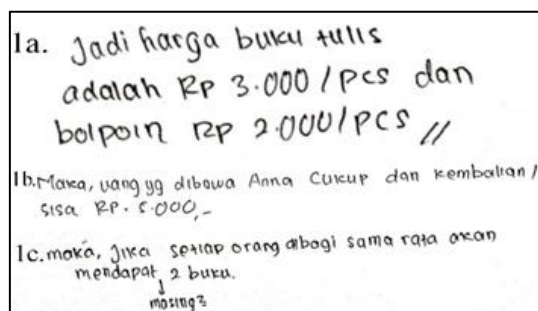 1a. Jadi harga buku tulis
adalah Rp 3.000 / pcs dan
bolpoin Rp 2.000 / pcs //
1b. Maka, uang yg dibawa Anna cukup dan kembalian /
sisa RP. 5.000,-
1c. maka, jika setiap orang dibagi sama rata akan
mendapat 2 buku.
↓
masing2